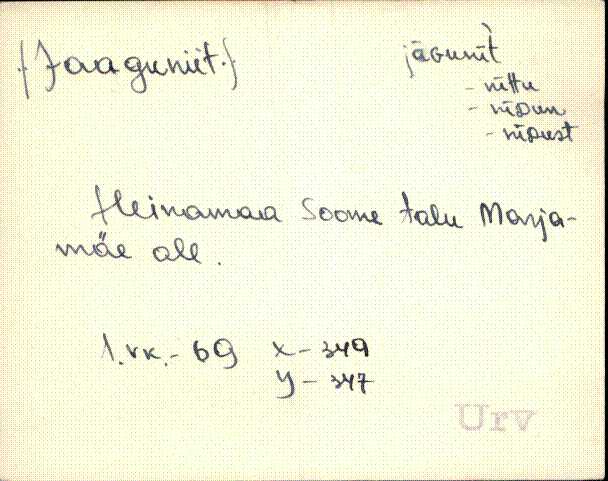 {Jaaguniit.}
jāɢunīt̀
- nīttu
- nīᴅun
- nīᴅust
Heinamaa Soome talu Marja-
mäe all.
1. vk. - 69 x - 349
y - 347
Urv